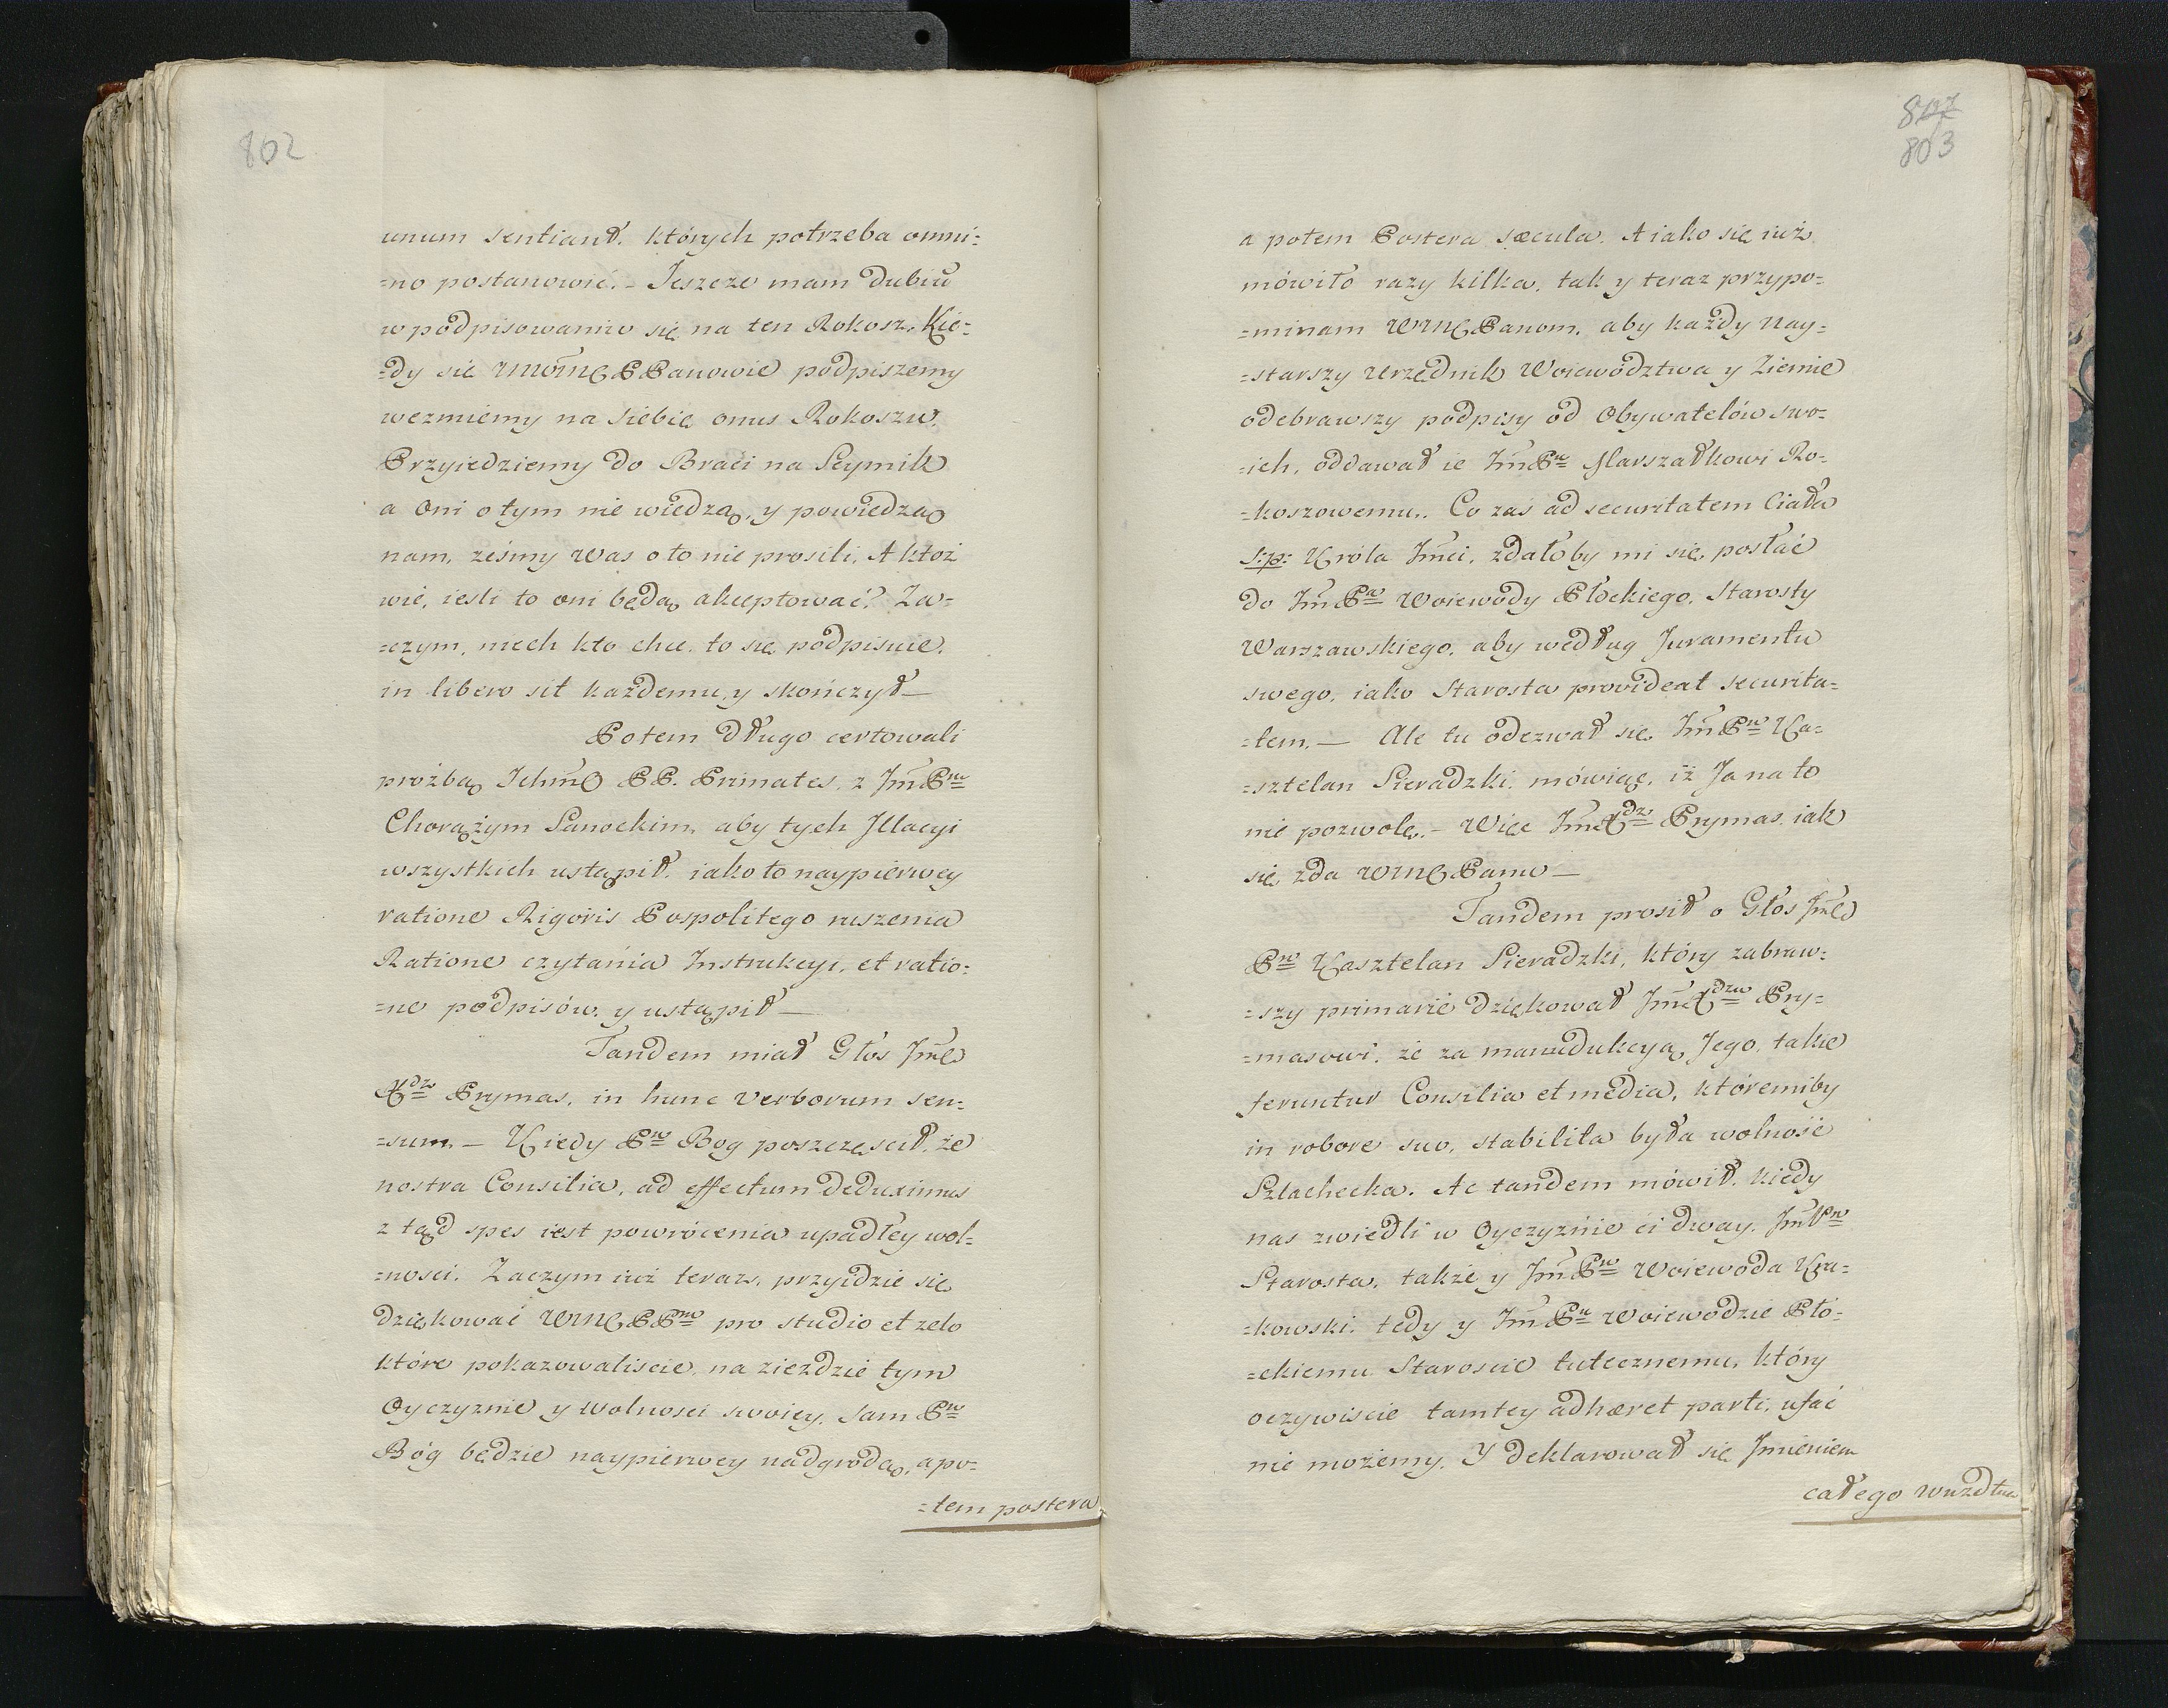 802
unum sentiant. których potrzeba omni=
=no postanowić. – Jeszcze mam dubiū
w podpisowaniu się na ten Rokosz. Kie=
=dy się PPanowie podpiszemy
wezmiemy na siebie onus Rokoszu.
Przyiedziemy do Braci na Seymik
a oni o tym nie wiedzą, y powiedzą
nam, ześmy Was o to nie prosili. A ktoż
wie, iesli to oni będą akceptować? Za=
=czym, niech kto chce, to się podpisuie.
in libero sit każdemu, y skończył –
Potem długo certowali
proźbą Ichmć PP. Primates, z Jm̃ Pnem
Chorążym Sanockim, aby tych Illacyi
wszystkich ustąpił. iako to naypierwey
ratione Rigoris Pospolitego ruszenia
Ratione czytania Instrukcyi, et ratio=
=ne podpisów. y ustąpił –
Tandem miał Głos Jm̃ć
Xdz Prymas, in hunc verborum sen=
=sum. – Kiedy Pn Bog poszczęscił, że
nostra Consilia, ad effectum deduximus
z tąd spes iest powrócenia upadłey wol=
=nosci. Zaczym iuż teraz, przyidzie się
dziękować WMć PPnm pro studio et zelo
które pokazowaliscie, na zieździe tym
Oyczyznie y Wolnosci swoiey. Sam Pn
Bóg będzie naypierwey nadgrodą, a po=
=tem postera
803
a potem Postera sæcula. A iako się iuż
mówiło razy kilka, tak y teraz przypo=
=minam WMć Panom, aby każdy nay=
=starszy Urzędnik Woiewództwa y Ziemie
odebrawszy podpisy od Obywatelów swo=
=ich, oddawał ie Jm̃ Pu Marszałkowi Ro=
=koszowemu. Co zas ad securitatem Ciała
S:p: Króla Jm̃ci, zdałoby mi się, posłać
do Jm̃ Pa Woiewody Płockiego, Starosty
Warszawskiego, aby według Juramentu
swego, iako Starosta provideat securita=
=tem. – Ale tu odezwał się Jm̃ Pn Ka=
=sztelan Sieradzki, mówiąc, iż Ja na to
nie pozwolę. – Więc Jm̃ć Xdz Prymas, iak
się zda WMć Panu –
Tandem prosił o Głos Jm̃ć
Pn Kasztelan Sieradzki, który zabraw=
=szy primarié dziękował Jm̃ć Xdzu Pry=
=masowi, że za manudukcyą Jego, takie
feruntur Consilia et media, któremiby
in robore suo, stabilita była wolność
Szlachecka. Ac tandem mówił, kiedy
nas zwiedli w Oyczyznie ci dway, Jm̃ Pn
Starosta, także y Jm̃ Pn Woiewoda Kra=
=kowski, tedy y Jm̃ Pu Woiewodzie Pło=
=ckiemu Staroscie tutecznemu, który
oczywiscie tamtey adhæret parti, ufać
nie możemy. Y deklarował się Jmieniem
całego Wuzdtwa